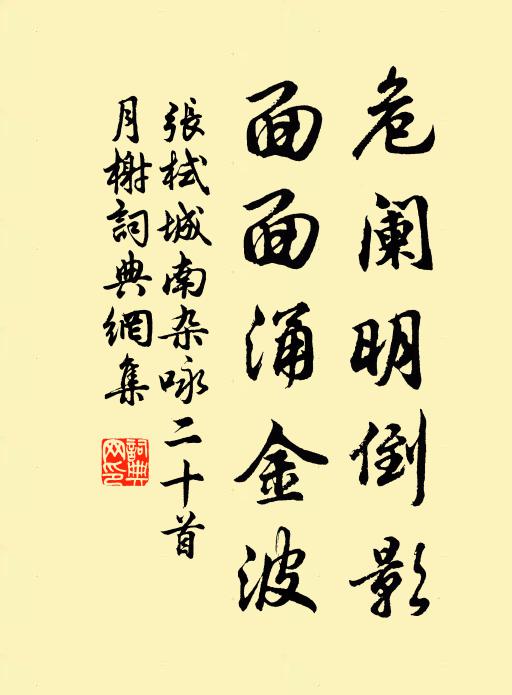 危阑明倒影
面面涌金波
張栻城南杂咏二十首
月榭詞典網集
詞典网印